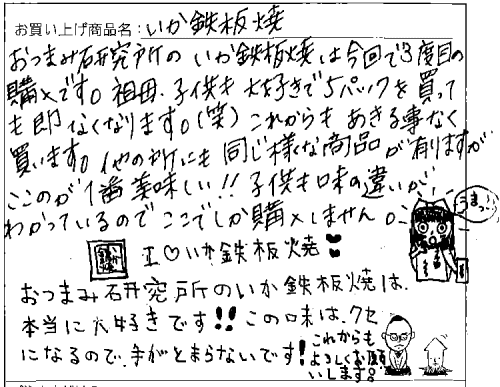 お買い上げ商品名：いか鉄板焼
おつまみ研究所の いか鉄板焼は今回で3度目の
購入です。祖母、子供も 大好きで5パックを買って
も即 なくなります。(笑) これからも あきる事なく
買います。他の所にも 同じ様な商品が有りますが
ここのが1番美味しい!! 子供も味の違いが
わかっているので ここでしか購入しません。
うまっ!!
I♡いか鉄板焼
おつまみ研究所のいか鉄板焼は、
本当に大好きです!! この味は、クセ
になるので、手がとまらないです!
これからも
よろしくお願
いします。